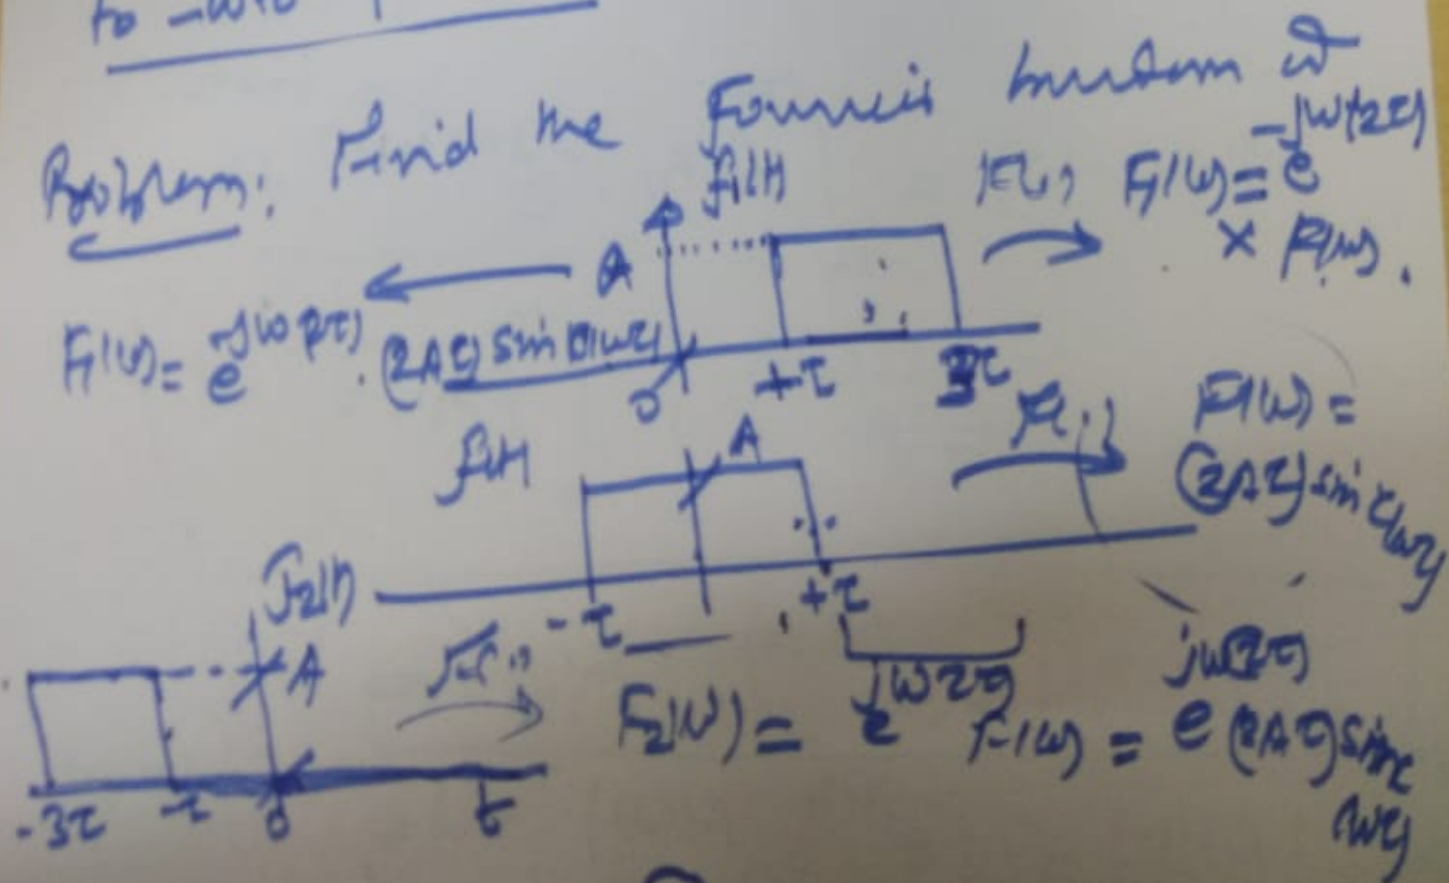 to -
Problem: Find the Fourier of
f₁(t) F(.) F₁(ω) = e^-jω(2τ)
A × F(ω).
F₁(ω) = e^-jω(2τ) . (2Aτ) sinc(ωτ)
0 +τ 3τ
f(t) A F(.) F(ω) =
(2Aτ) sinc(ωτ)
f₂(t) -τ +τ
A F(.) F₂(ω) = e^jω2τ F(ω) = e^jω(2τ) (2Aτ) sinc
(ωτ)
-3τ -τ 0 t